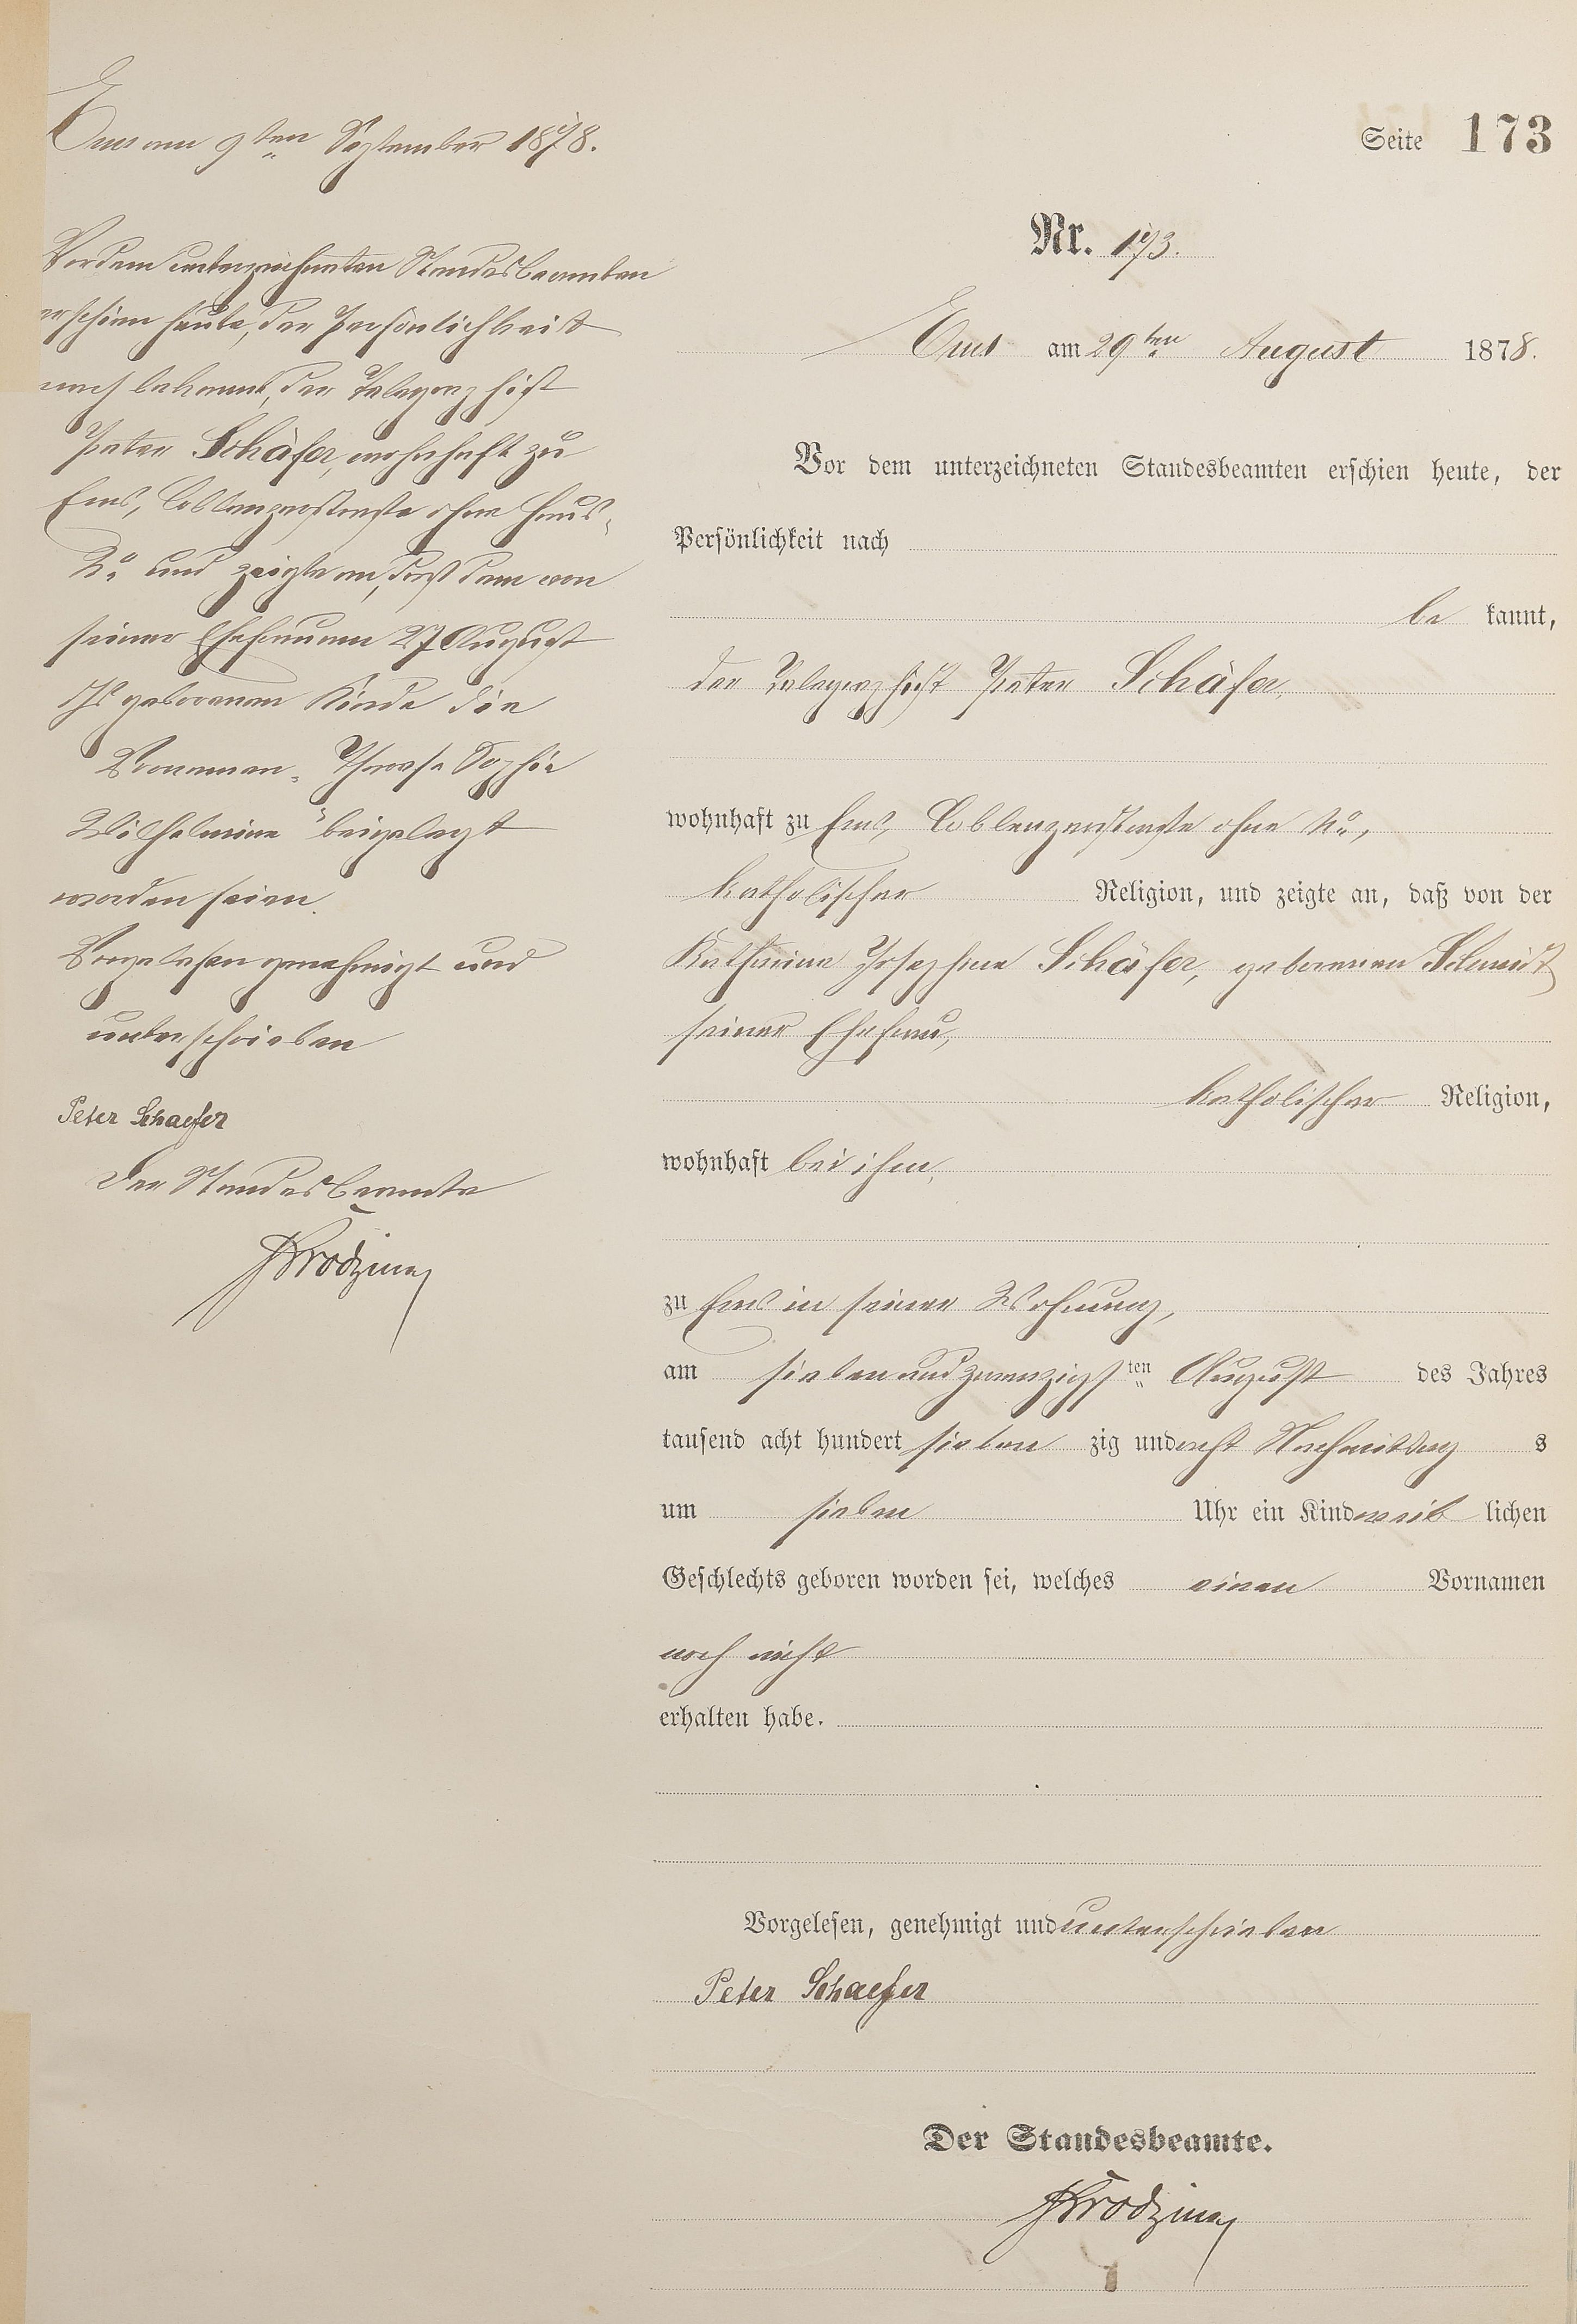 Ems am 9ten September 1878.
Vor dem unterzeichneten Standesbeamten
erschien heute, der Persönlichkeit
nach bekannt, der Telegraphist
Peter Schäfer, wohnhaft zu
Ems, Coblenzerstraße ohne Haus-
No und zeigte an, daß dem von
seiner Ehefrau am 27 August
geborenen Kinde die
Vornamen „Therese Sophie
Wilhelmine“ beigelegt
worden seien.
Vorgelesen genehmigt und
unterschrieben
Peter Schaefer
Der Standesbeamte
Seite 173
Nr. 173.
Ems am 29ten August 1878.
Vor dem unterzeichneten Standesbeamten erschien heute, der
Persönlichkeit nach
be kannt,
der Telegraphist Peter Schäfer,
wohnhaft zu Ems, Coblenzerstraße ohne No,
katholischer Religion, und zeigte an, daß von der
Katharina Josephine Schäfer, geborenen Schmidt
seiner Ehefrau,
katholischer Religion,
wohnhaft bei ihm,
zu Ems in seiner Wohnung,
am siebenundzwanzigsten August des Jahres
tausend acht hundert sieben zig und acht Nachmittag s
um sieben Uhr ein Kind weib lichen
Geschlechts geboren worden sei, welches einen Vornamen
noch nicht
erhalten habe.
Vorgelesen, genehmigt und unterschrieben
Peter Schaefer
Der Standesbeamte.